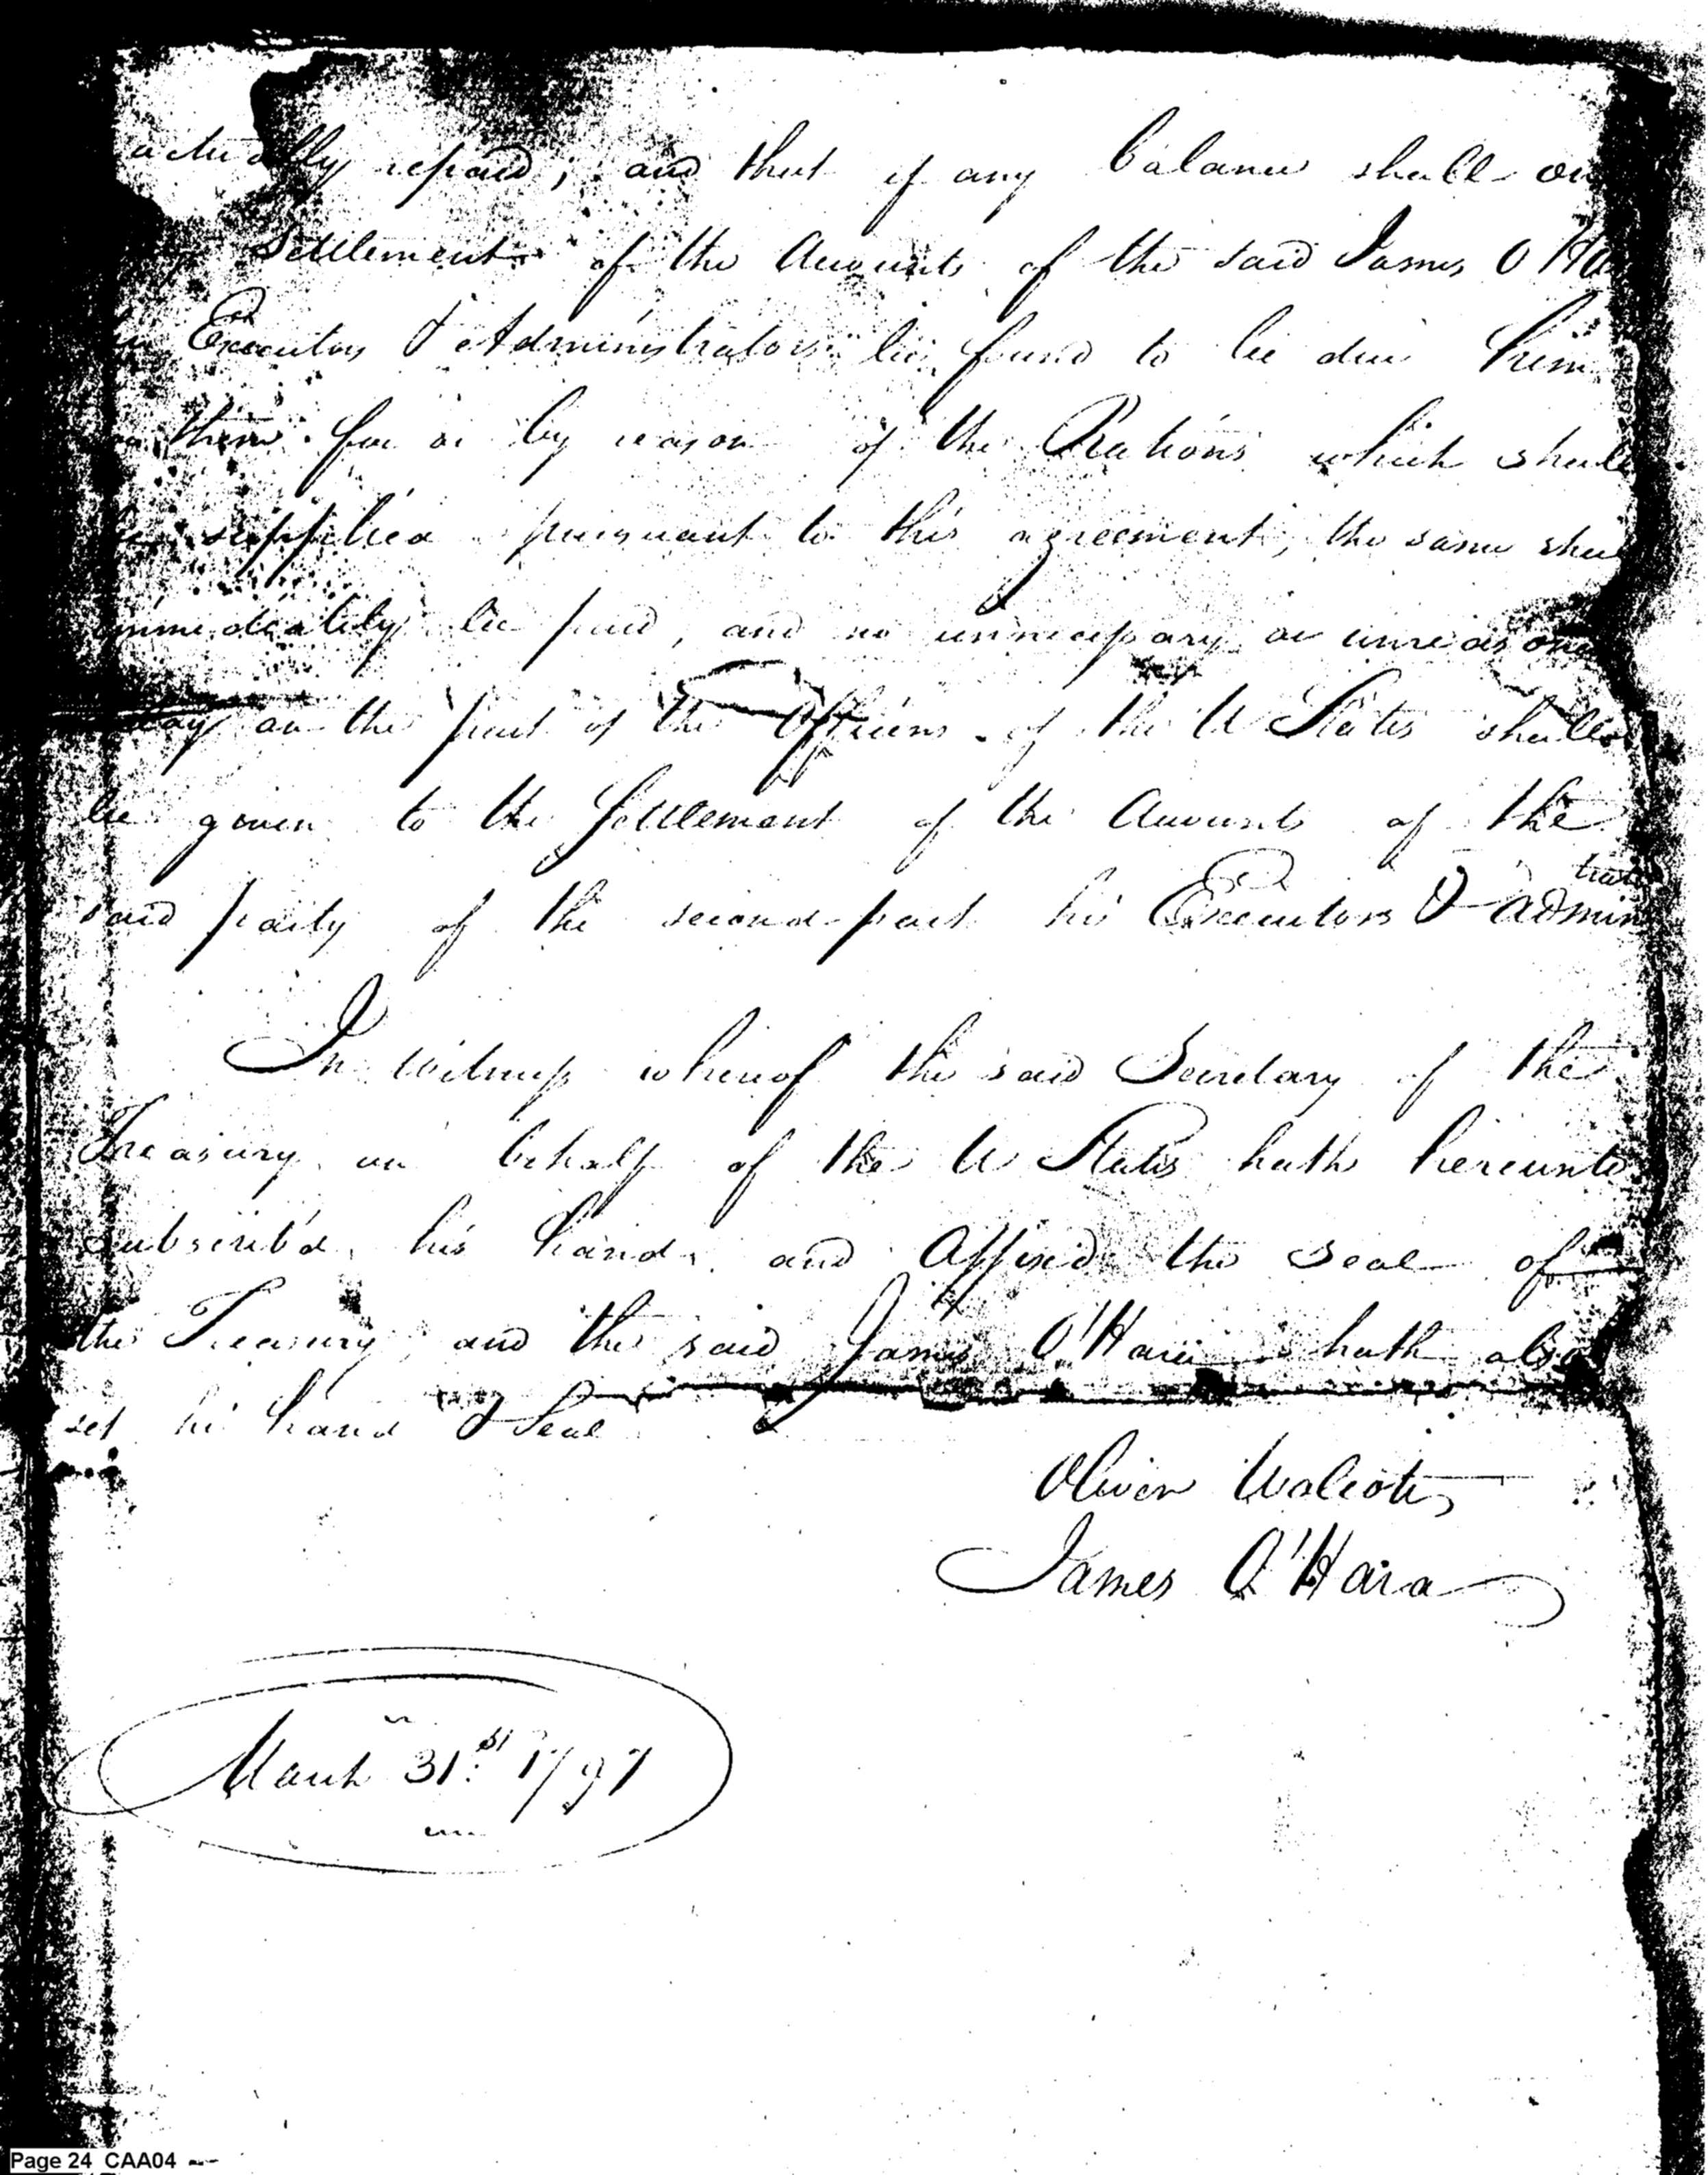 actually repaid; and that if any balance shall on
Settlement of the Accounts of the said James O Ha
Executors & Administrators be found to be due him
them for or by reason of the Rations which shall
be supplied pursuant to this agreement, the same shall
immediately be paid, and no unnecessary or unreasona
delay on the part of the Officers of the U States shall
be given to the Settlement of the Accounts of the
said party of the second part his Executors & admintrat
In witness whereof the said Secretary of the
Treasury on behalf of the U States hath hereunto
subscrib'd his hand, and Affixed the Seal of
the Treasury, and the said James O'Hara hath also
set his hand & Seal
Oliver Wolcott
James O'Hara
March 31st 1797
Page 24 CAA04